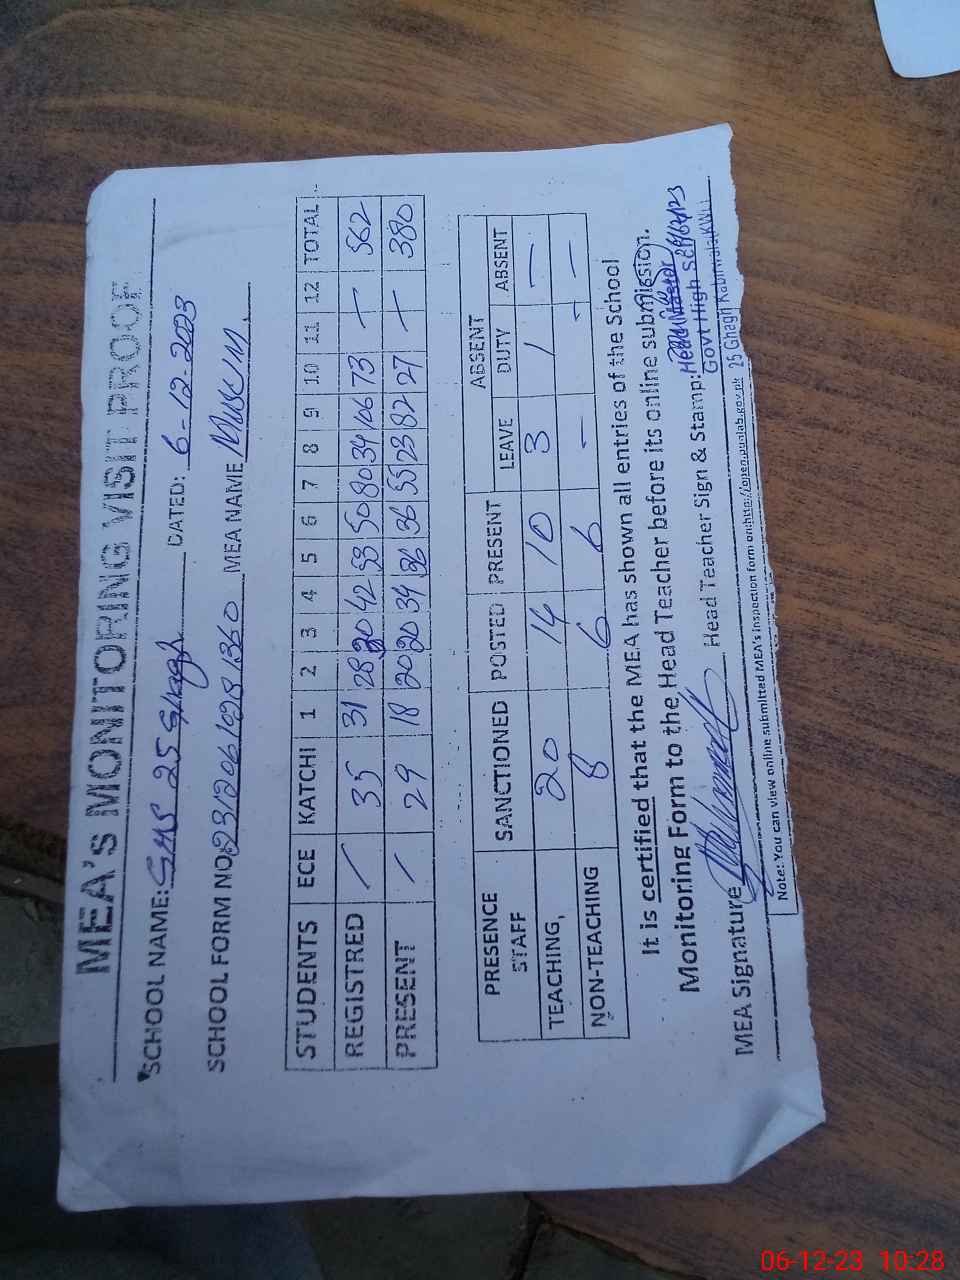 MEA's MONITORING VISIT PROOF
SCHOOL NAME: GHS 25 Ghagh DATED: 6-12-2023
SCHOOL FORM NO. MEA NAME
STUDENTS ECE KATCHI 1 2 3 4 5 6 7 8 9 10 11 12 TOTAL
REGISTRED / 35 31 28 30 42 53 50 80 34 106 73 — 562
PRESENT / 29 18 20 20 34 36 36 55 23 82 27 — 380
PRESENCE STAFF SANCTIONED POSTED PRESENT ABSENT
LEAVE DUTY ABSENT
TEACHING, 20 14 10 3 1 —
NON-TEACHING 8 6 6 - - —
It is certified that the MEA has shown all entries of the School
Monitoring Form to the Head Teacher before its online submission.
MEA Signature Head Teacher Sign & Stamp: Head Master
Govt High School
25 Ghagh Kabirwala (KWL)
Note: You can view online submitted MEA's inspection form on:http://open.punjab.gov.pk
06-12-23 10:28